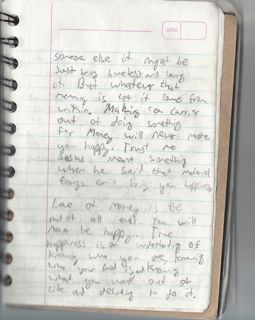 DATE
someone else it might be
Just being homeless and loving
it. But whatever that
meaning is let it come from
within. Making a career
out of doing something
for Money will never make
you happy. Trust me
Jesus meant something
when he said that material
things can't bring you happiness
Love of Money is the
root of all evil you will
never be happy. True
happiness is an understanding of
knowing who you are, knowing
who your God is and knowing
what you want out of
life and deciding to do it.